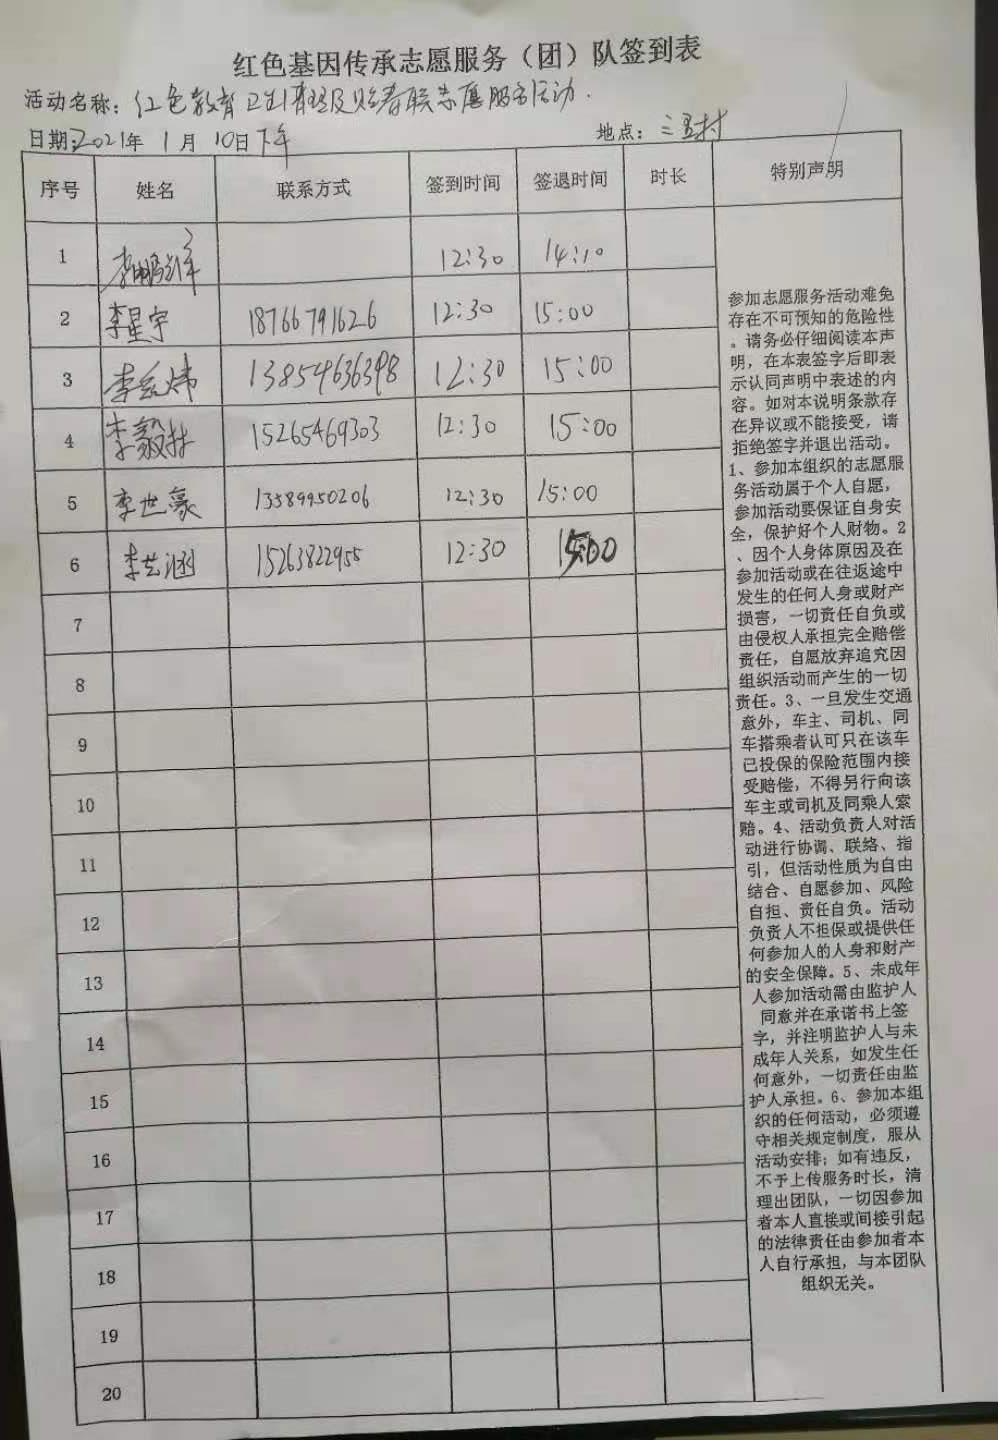 红色基因传承志愿服务（团）队签到表
活动名称：红色教育 卫生清理及贴春联志愿服务活动.
日期：2021年 1月 10日下午 地点：三里村
序号 姓名 联系方式 签到时间 签退时间 时长 特别声明
1 李鹏祥 12:30 14:10
2 李星宇 18766791626 12:30 15:00
3 李炜 13854636398 12:30 15:00
4 李毅林 15265469303 12:30 15:00
5 李世豪 13589950206 12:30 15:00
6 李艺涵 15263822955 12:30 15:00
7
8
9
10
11
12
13
14
15
16
17
18
19
20
参加志愿服务活动难免
存在不可预知的危险性
。请务必仔细阅读本声
明，在本表签字后即表
示认同声明中表述的内
容。如对本说明条款存
在异议或不能接受，请
拒绝签字并退出活动。
1、参加本组织的志愿服
务活动属于个人自愿，
参加活动要保证自身安
全，保护好个人财物。2
、因个人身体原因及在
参加活动或在往返途中
发生的任何人身或财产
损害，一切责任自负或
由侵权人承担完全赔偿
责任，自愿放弃追究因
组织活动而产生的一切
责任。3、一旦发生交通
意外，车主、司机、同
车搭乘者认可只在该车
已投保的保险范围内接
受赔偿，不得另行向该
车主或司机及同乘人索
赔。4、活动负责人对活
动进行协调、联络、指
引，但活动性质为自由
结合、自愿参加、风险
自担、责任自负。活动
负责人不担保或提供任
何参加人的人身和财产
的安全保障。5、未成年
人参加活动需由监护人
同意并在承诺书上签
字，并注明监护人与未
成年人关系，如发生任
何意外，一切责任由监
护人承担。6、参加本组
织的任何活动，必须遵
守相关规定制度，服从
活动安排；如有违反，
不予上传服务时长，清
理出团队，一切因参加
者本人直接或间接引起
的法律责任由参加者本
人自行承担，与本团队
组织无关。